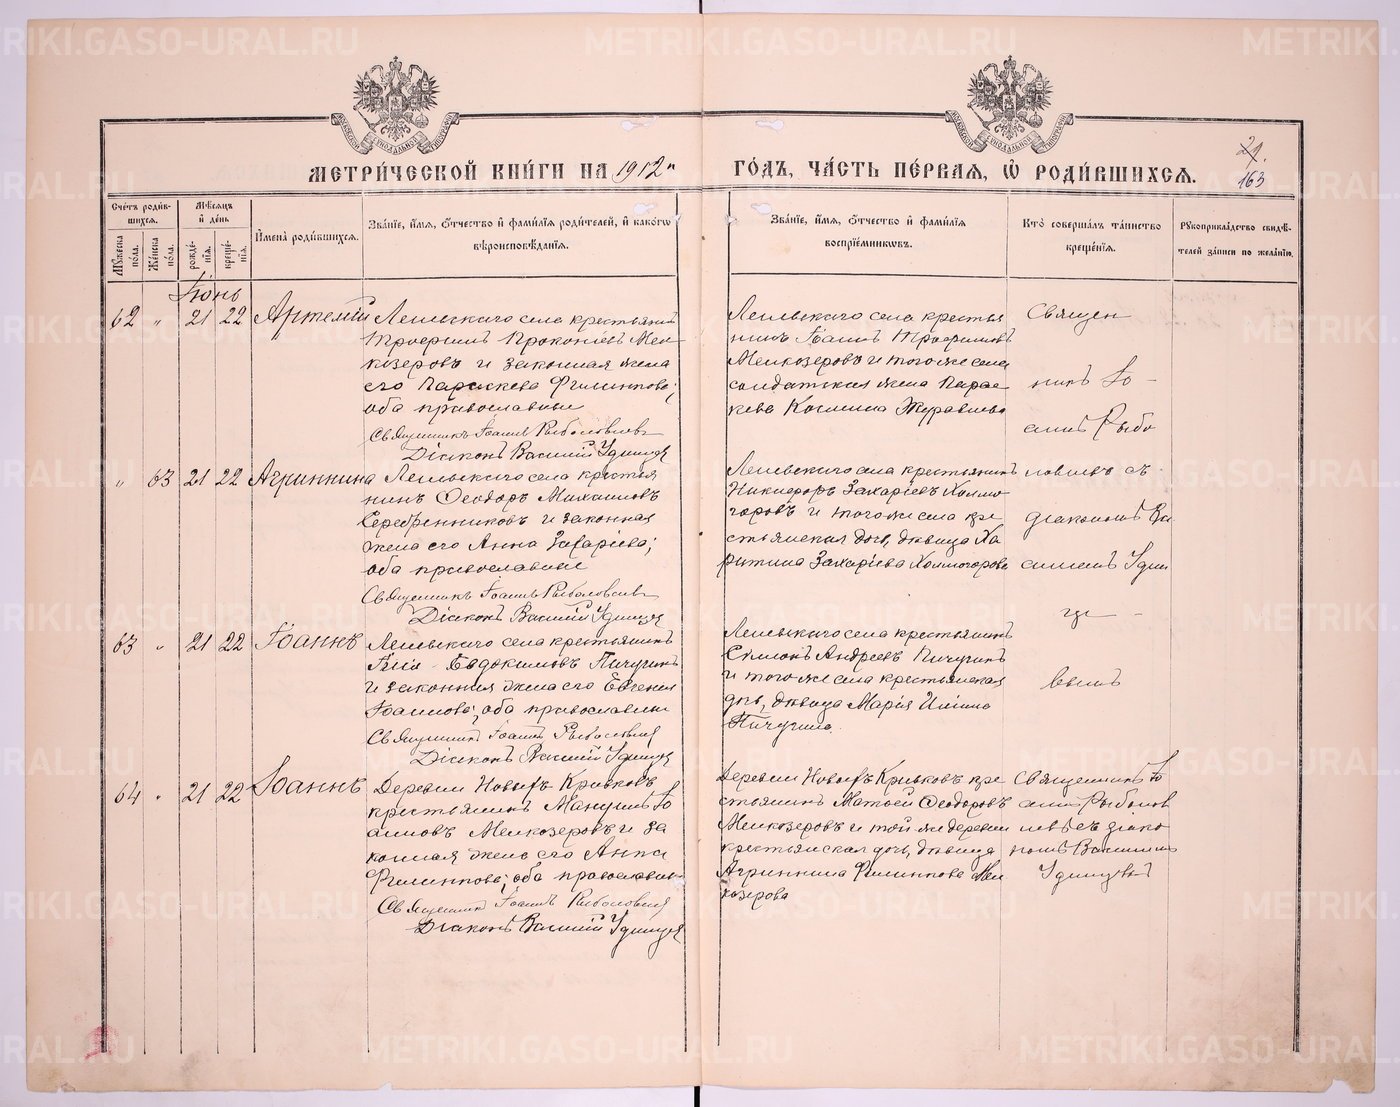 МЕТРИ́ЧЕСКОЙ КНИ́ГИ НА 1912й ГО́ДЪ, ЧА́СТЬ ПЕ́РВАЯ, Ѡ҆ РОДИ́ВШИХСЯ.
21.
163
Сче́тъ роди́вшихся.
Мѹ́жеска по́ла.
Же́нска по́ла.
Мѣ́сяцъ и҆ де́нь
рожде́нїя.
креще́нїя.
И҆мена̀ роди́вшихся.
Зва́нїе, и҆́мя, ѻ҆́тчество и҆ фами́лїя роди́телей, и҆ како́гѡ вѣроисповѣ́данїя.
Зва́нїе, и҆́мя, ѻ҆́тчество и҆ фами́лїя воспрїе́мникѡвъ.
Кто̀ соверша́лъ та́инство креще́нїя.
Рѹкоприкла́дство свидѣ́телей за́писи по жела́нїю.
Іюнь
62 " 21 22 Артемій
крестьянинъ
Трофимъ Прокопіевъ Мел
козеровъ и законная жена
его Параскева Филиппова;
оба православные
Священникъ Іоаннъ Рыболовлевъ
Діаконъ Василій Удинцев
села крестья
нинъ Іоаннъ Трофимовъ
Мелкозеровъ и того же села
солдатская жена Парас
кева Космина Журавлева
Священ
никъ Іо
аннъ Рыбо
" 63 21 22 Агриппина
села крестья
нинъ Ѳеодоръ Михаиловъ
Серебренниковъ и законная
жена его Анна Захаріева;
оба православные
Священникъ Іоаннъ Рыболовлев
Діаконъ Василій Удинцев
села крестьянинъ
Никифоръ Захаріевъ Холмо
горовъ и того же села кре
стьянская дочь, дѣвица Ха
ритина Захаріева Холмогорова
ловлевъ съ
діакономъ Ва
силіемъ Удин
це
63 " 21 22 Іоаннъ
села крестьянинъ
Илія Евдокимовъ Пичугинъ
и законная жена его Евгенія
Іоаннова; оба православные
Священникъ Іоаннъ Рыболовлев
Діаконъ Василій Удинцев
села крестьянинъ
Симеонъ Андреевъ Пичугинъ
и того же села крестьянская
дочь, дѣвица Марія Иліина
Пичугина.
вымъ
64 " 21 22 Іоаннъ
Деревни Новыхъ Кривковъ
крестьянинъ Мануилъ Іо
анновъ Мелкозеровъ и за
конная жена его Анна
Филиппова; оба православные
Священникъ Іоаннъ Рыболовлев
Діаконъ Василій Удинцев
Деревни Новыхъ Кривковъ кре
стьянинъ Матѳей Ѳеодоровъ
Мелкозеровъ и той же деревни
крестьянская дочь, дѣвица
Агриппина Филиппова Мел
козерова
Священникъ Іо
аннъ Рыболов
левъ съ діако
номъ Василіемъ
Удинцевымъ
METRIKI.GASO-URAL.RU